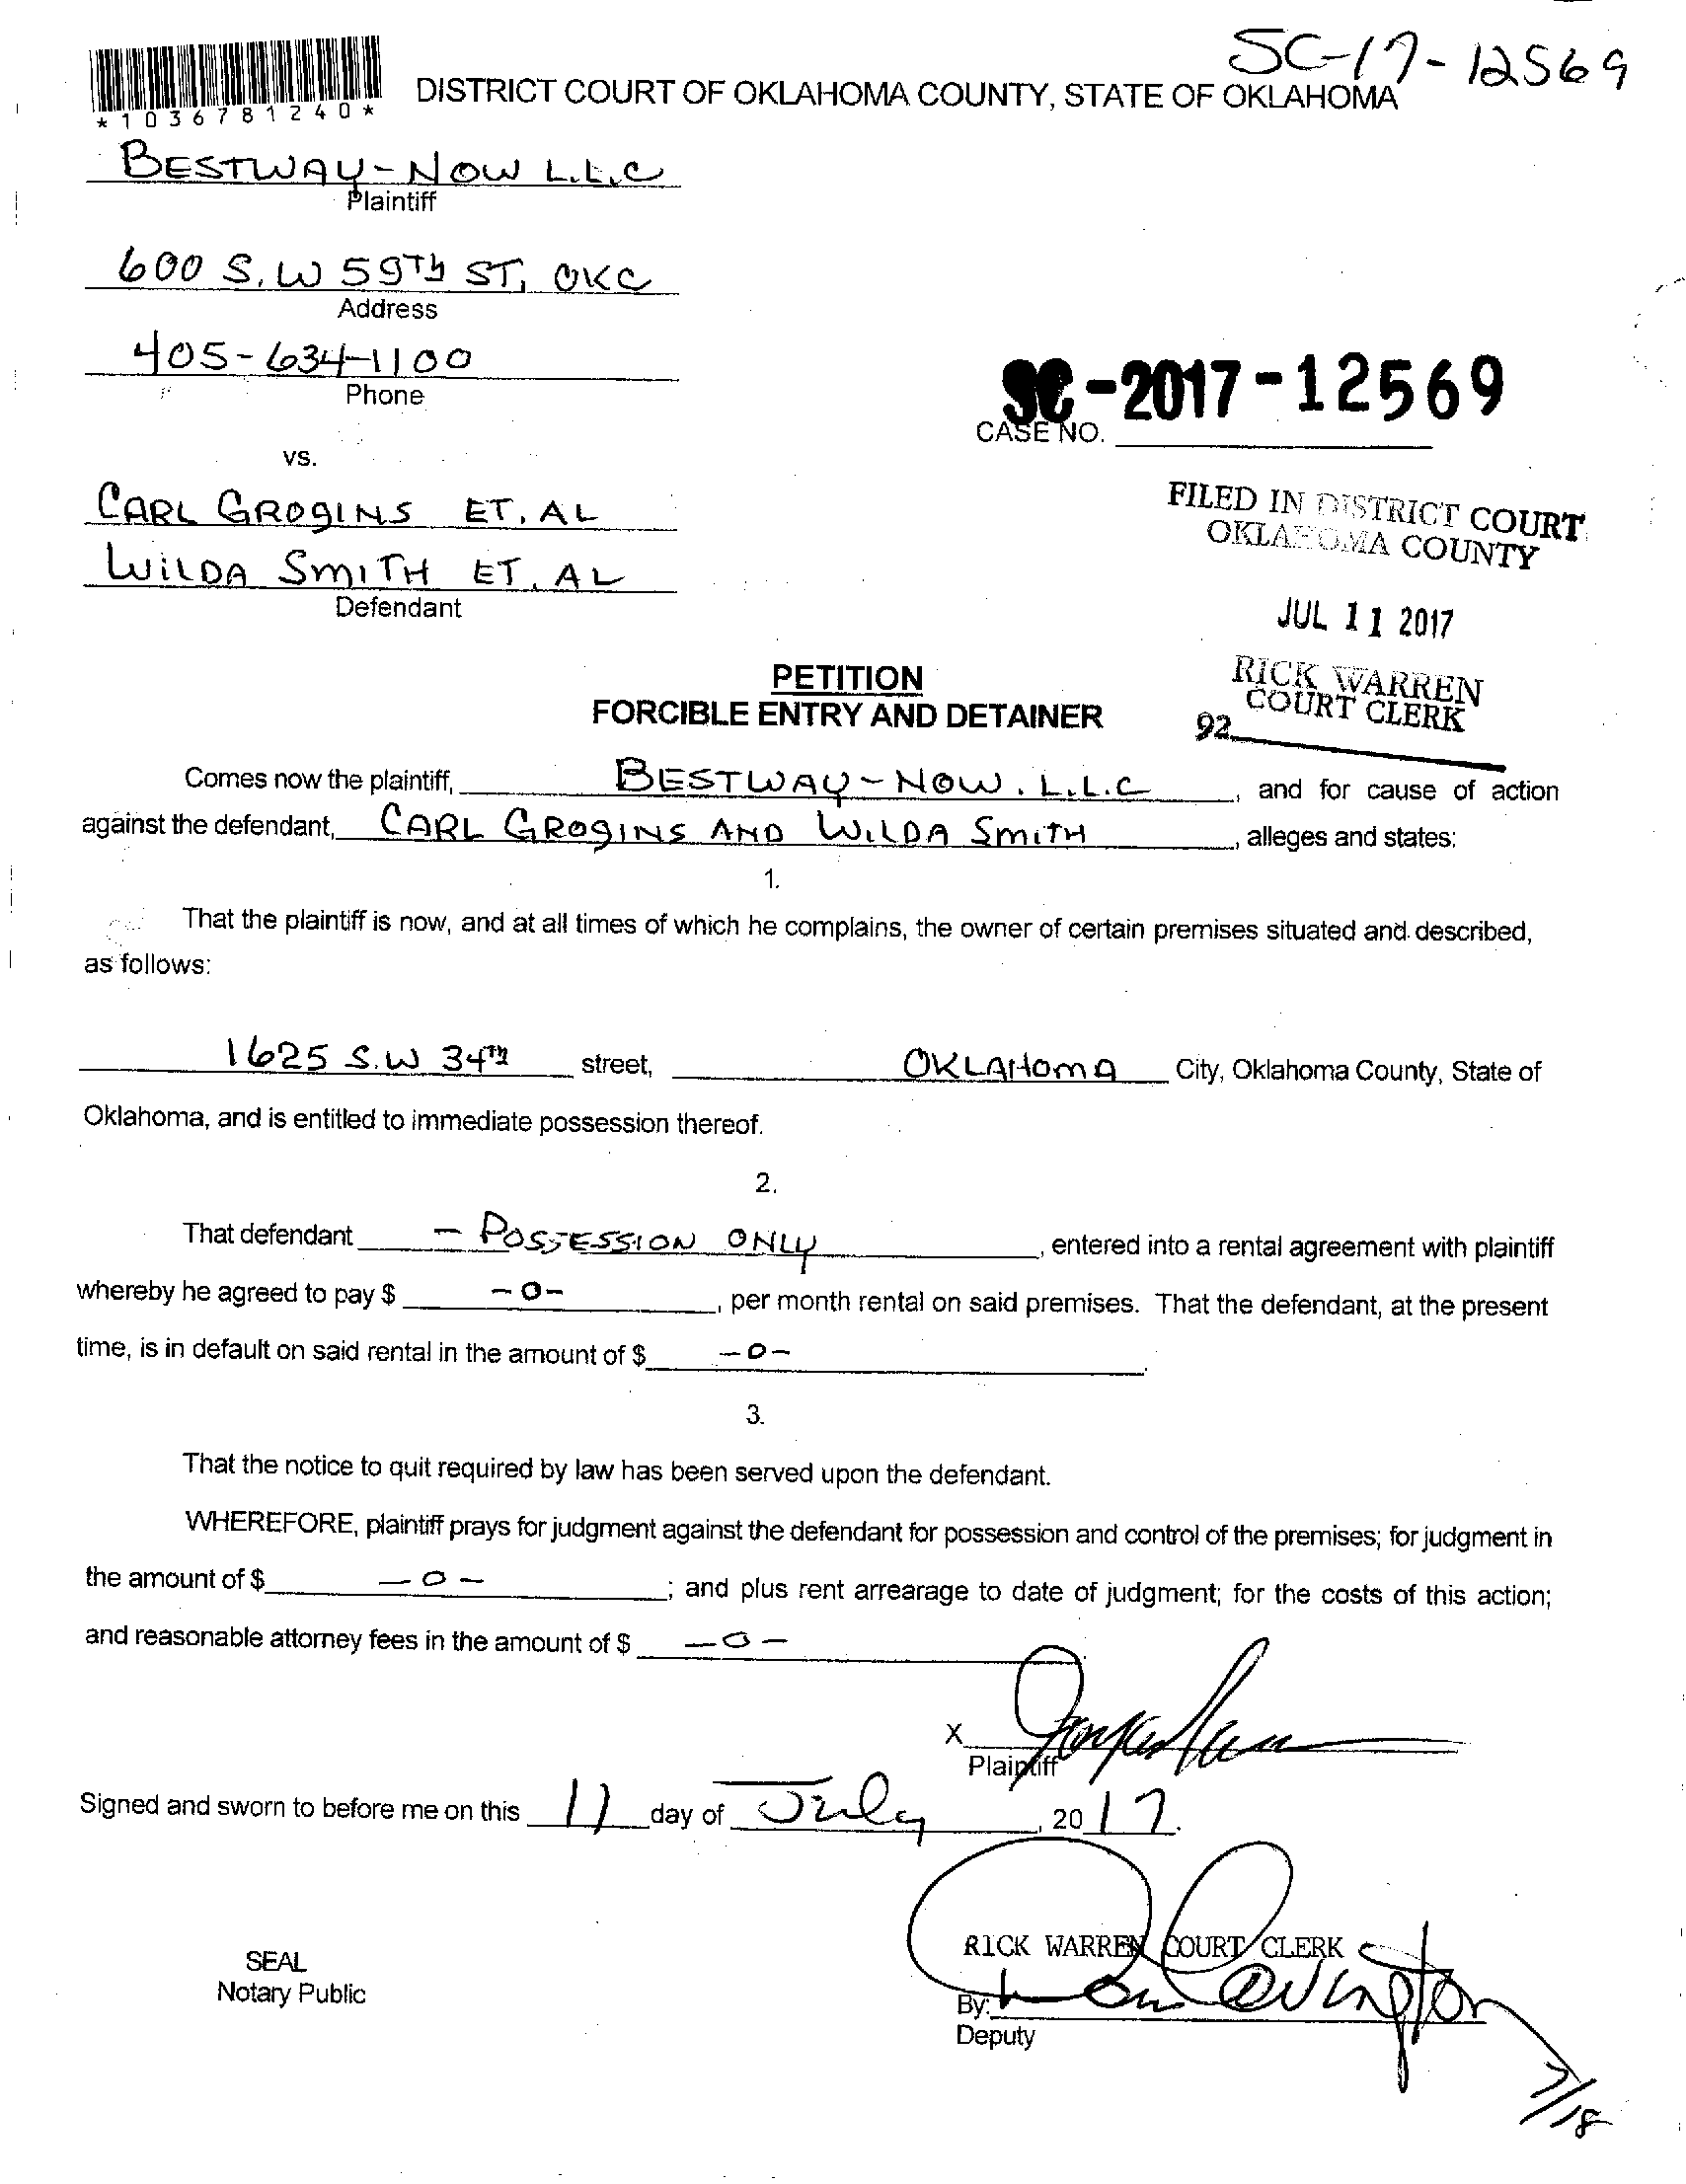 SC-17-12569
*1036781240*
DISTRICT COURT OF OKLAHOMA COUNTY, STATE OF OKLAHOMA
BESTWAY-NOW L.L.C
Plaintiff
600 S.W 59TH ST, OKC
Address
405-634-1100
Phone
SC-2017-12569
CASE NO.
vs.
CARL GROGINS ET. AL
WILDA SMITH ET. AL
Defendant
FILED IN DISTRICT COURT
OKLAHOMA COUNTY
JUL 11 2017
RICK WARREN
COURT CLERK
92
PETITION
FORCIBLE ENTRY AND DETAINER
Comes now the plaintiff, BESTWAY-NOW. L.L.C, and for cause of action
against the defendant, CARL GROGINS AND WILDA SMITH, alleges and states:
1.
That the plaintiff is now, and at all times of which he complains, the owner of certain premises situated and described,
as follows:
1625 S.W 34TH street, OKLAHOMA City, Oklahoma County, State of
Oklahoma, and is entitled to immediate possession thereof.
2.
That defendant - POSSESSION ONLY, entered into a rental agreement with plaintiff
whereby he agreed to pay $ -0-, per month rental on said premises. That the defendant, at the present
time, is in default on said rental in the amount of $ -0-.
3.
That the notice to quit required by law has been served upon the defendant.
WHEREFORE, plaintiff prays for judgment against the defendant for possession and control of the premises; for judgment in
the amount of $ -0-; and plus rent arrearage to date of judgment; for the costs of this action;
and reasonable attorney fees in the amount of $ -0-
X
Plaintiff
Signed and sworn to before me on this 11 day of July, 2017.
RICK WARREN COURT CLERK
SEAL
Notary Public
By: Covington
Deputy
7/18